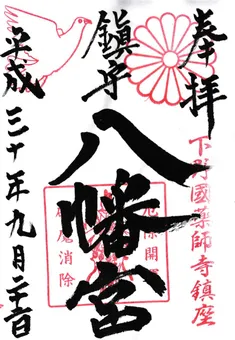 奉拝
下野國薬師寺鎮座
鎮守
八幡宮
除開
魔消除
平成三十年九月